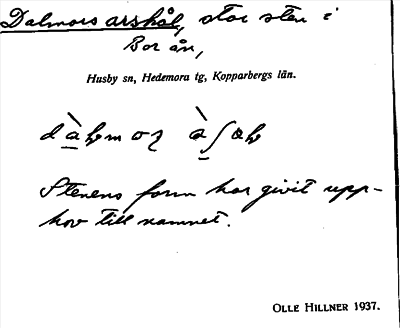 Dalmors arshål, stor sten i
Bor ån,
Husby sn, Hedemora tg, Kopparbergs län.
Stenens form har givit upp-
hov till namnet.
OLLE HILLNER 1937.